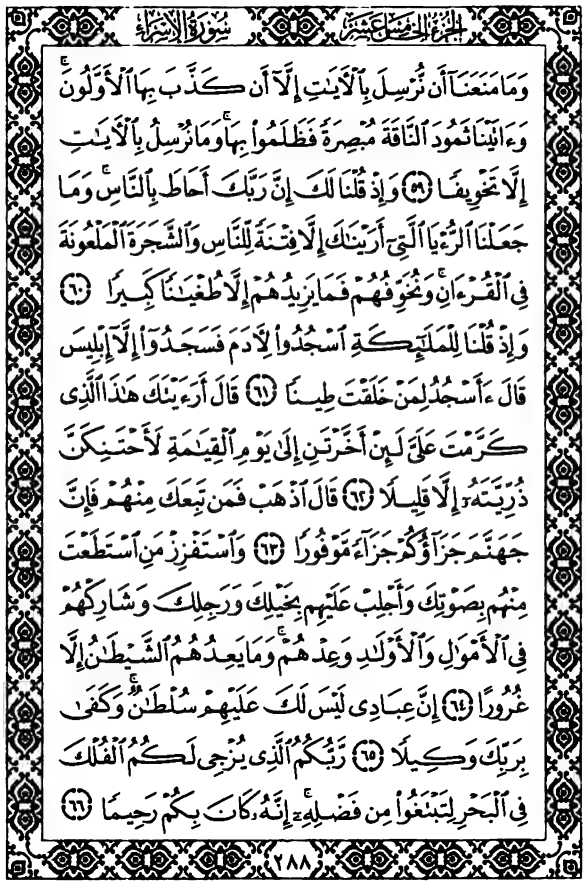 سُورَةُ الْإِسْرَاءِ
الجُزْءُ الخَامِسَ عَشَرَ
وَمَا مَنَعَنَآ أَن نُّرْسِلَ بِٱلْءَايَـٰتِ إِلَّآ أَن كَذَّبَ بِهَا ٱلْأَوَّلُونَ ۚ
وَءَاتَيْنَا ثَمُودَ ٱلنَّاقَةَ مُبْصِرَةً فَظَلَمُوا۟ بِهَا ۚ وَمَا نُرْسِلُ بِٱلْءَايَـٰتِ
إِلَّا تَخْوِيفًا ﴿٥٩﴾ وَإِذْ قُلْنَا لَكَ إِنَّ رَبَّكَ أَحَاطَ بِٱلنَّاسِ ۚ وَمَا
جَعَلْنَا ٱلرُّءْيَا ٱلَّتِىٓ أَرَيْنَـٰكَ إِلَّا فِتْنَةً لِّلنَّاسِ وَٱلشَّجَرَةَ ٱلْمَلْعُونَةَ
فِى ٱلْقُرْءَانِ ۚ وَنُخَوِّفُهُمْ فَمَا يَزِيدُهُمْ إِلَّا طُغْيَـٰنًا كَبِيرًا ﴿٦٠﴾
وَإِذْ قُلْنَا لِلْمَلَـٰٓئِكَةِ ٱسْجُدُوا۟ لِـَٔادَمَ فَسَجَدُوٓا۟ إِلَّآ إِبْلِيسَ
قَالَ ءَأَسْجُدُ لِمَنْ خَلَقْتَ طِينًا ﴿٦١﴾ قَالَ أَرَءَيْتَكَ هَـٰذَا ٱلَّذِى
كَرَّمْتَ عَلَىَّ لَئِنْ أَخَّرْتَنِ إِلَىٰ يَوْمِ ٱلْقِيَـٰمَةِ لَأَحْتَنِكَنَّ
ذُرِّيَّتَهُۥٓ إِلَّا قَلِيلًا ﴿٦٢﴾ قَالَ ٱذْهَبْ فَمَن تَبِعَكَ مِنْهُمْ فَإِنَّ
جَهَنَّمَ جَزَآؤُكُمْ جَزَآءً مَّوْفُورًا ﴿٦٣﴾ وَٱسْتَفْزِزْ مَنِ ٱسْتَطَعْتَ
مِنْهُم بِصَوْتِكَ وَأَجْلِبْ عَلَيْهِم بِخَيْلِكَ وَرَجِلِكَ وَشَارِكْهُمْ
فِى ٱلْأَمْوَٰلِ وَٱلْأَوْلَـٰدِ وَعِدْهُمْ ۚ وَمَا يَعِدُهُمُ ٱلشَّيْطَـٰنُ إِلَّا
غُرُورًا ﴿٦٤﴾ إِنَّ عِبَادِى لَيْسَ لَكَ عَلَيْهِمْ سُلْطَـٰنٌ ۚ وَكَفَىٰ
بِرَبِّكَ وَكِيلًا ﴿٦٥﴾ رَّبُّكُمُ ٱلَّذِى يُزْجِى لَكُمُ ٱلْفُلْكَ
فِى ٱلْبَحْرِ لِتَبْتَغُوا۟ مِن فَضْلِهِۦٓ ۚ إِنَّهُۥ كَانَ بِكُمْ رَحِيمًا ﴿٦٦﴾
٢٨٨